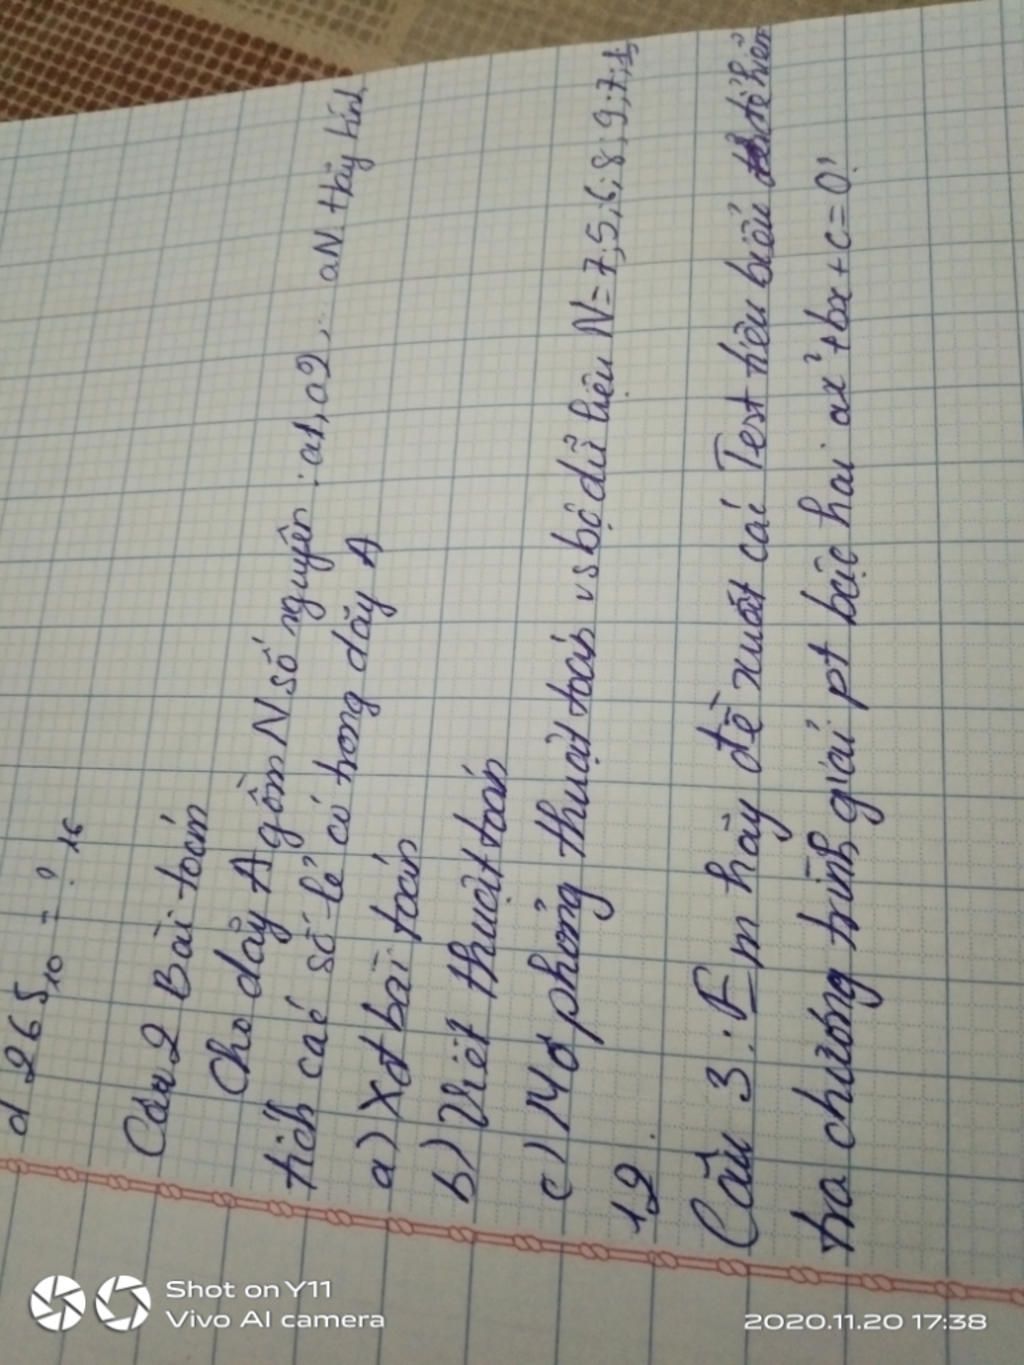 d 265₁₀ = ?₁₆
Câu 2 Bài toán
Cho dãy A gồm N số nguyên : a1, a2, ... aN hãy tính
tích các số lẻ có trong dãy A
a) Xđ bài toán
b) Viết thuật toán
c) Mô phỏng thuật toán vs bộ dữ liệu N=7;5;6;8;9;7;1;
12.
Câu 3: Em hãy đề xuất các Test tiêu biểu để
tra chương trình giải pt bậc hai ax²+bx+c=0!
Shot on Y11
Vivo AI camera
2020.11.20 17:38